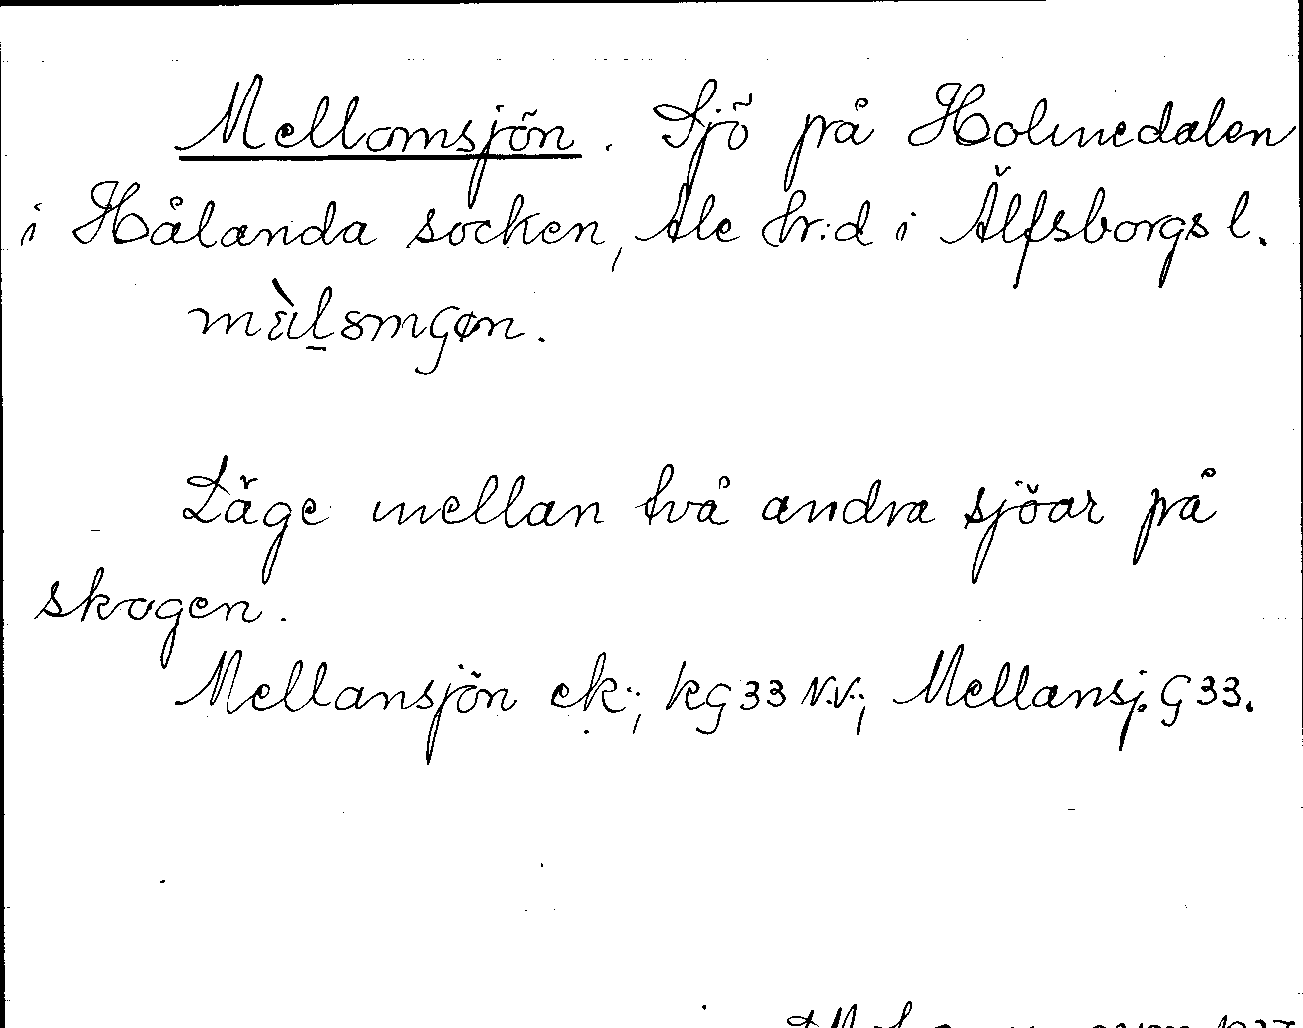 Mellomsjön. Sjö på Holmedalen
i Hålanda socken, Ale hr:d i Älfsborgs l.
Läge mellan två andra sjöar på
skogen.
Mellansjön ek.; kG33 N.V.; Mellansj. G33.